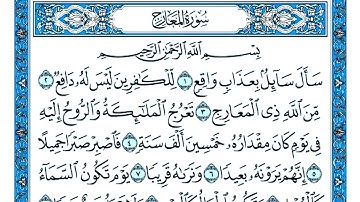 سُورَةُ المَعَارِجِ
بِسْمِ اللَّهِ الرَّحْمَٰنِ الرَّحِيمِ
سَأَلَ سَآئِلٌۢ بِعَذَابٍ وَاقِعٍ ١ لِّلْكَٰفِرِينَ لَيْسَ لَهُۥ دَافِعٌ ٢
مِّنَ ٱللَّهِ ذِى ٱلْمَعَارِجِ ٣ تَعْرُجُ ٱلْمَلَٰٓئِكَةُ وَٱلرُّوحُ إِلَيْهِ
فِى يَوْمٍ كَانَ مِقْدَارُهُۥ خَمْسِينَ أَلْفَ سَنَةٍ ٤ فَٱصْبِرْ صَبْرًا جَمِيلًا
٥ إِنَّهُمْ يَرَوْنَهُۥ بَعِيدًا ٦ وَنَرَىٰهُ قَرِيبًا ٧ يَوْمَ تَكُونُ ٱلسَّمَآءُ